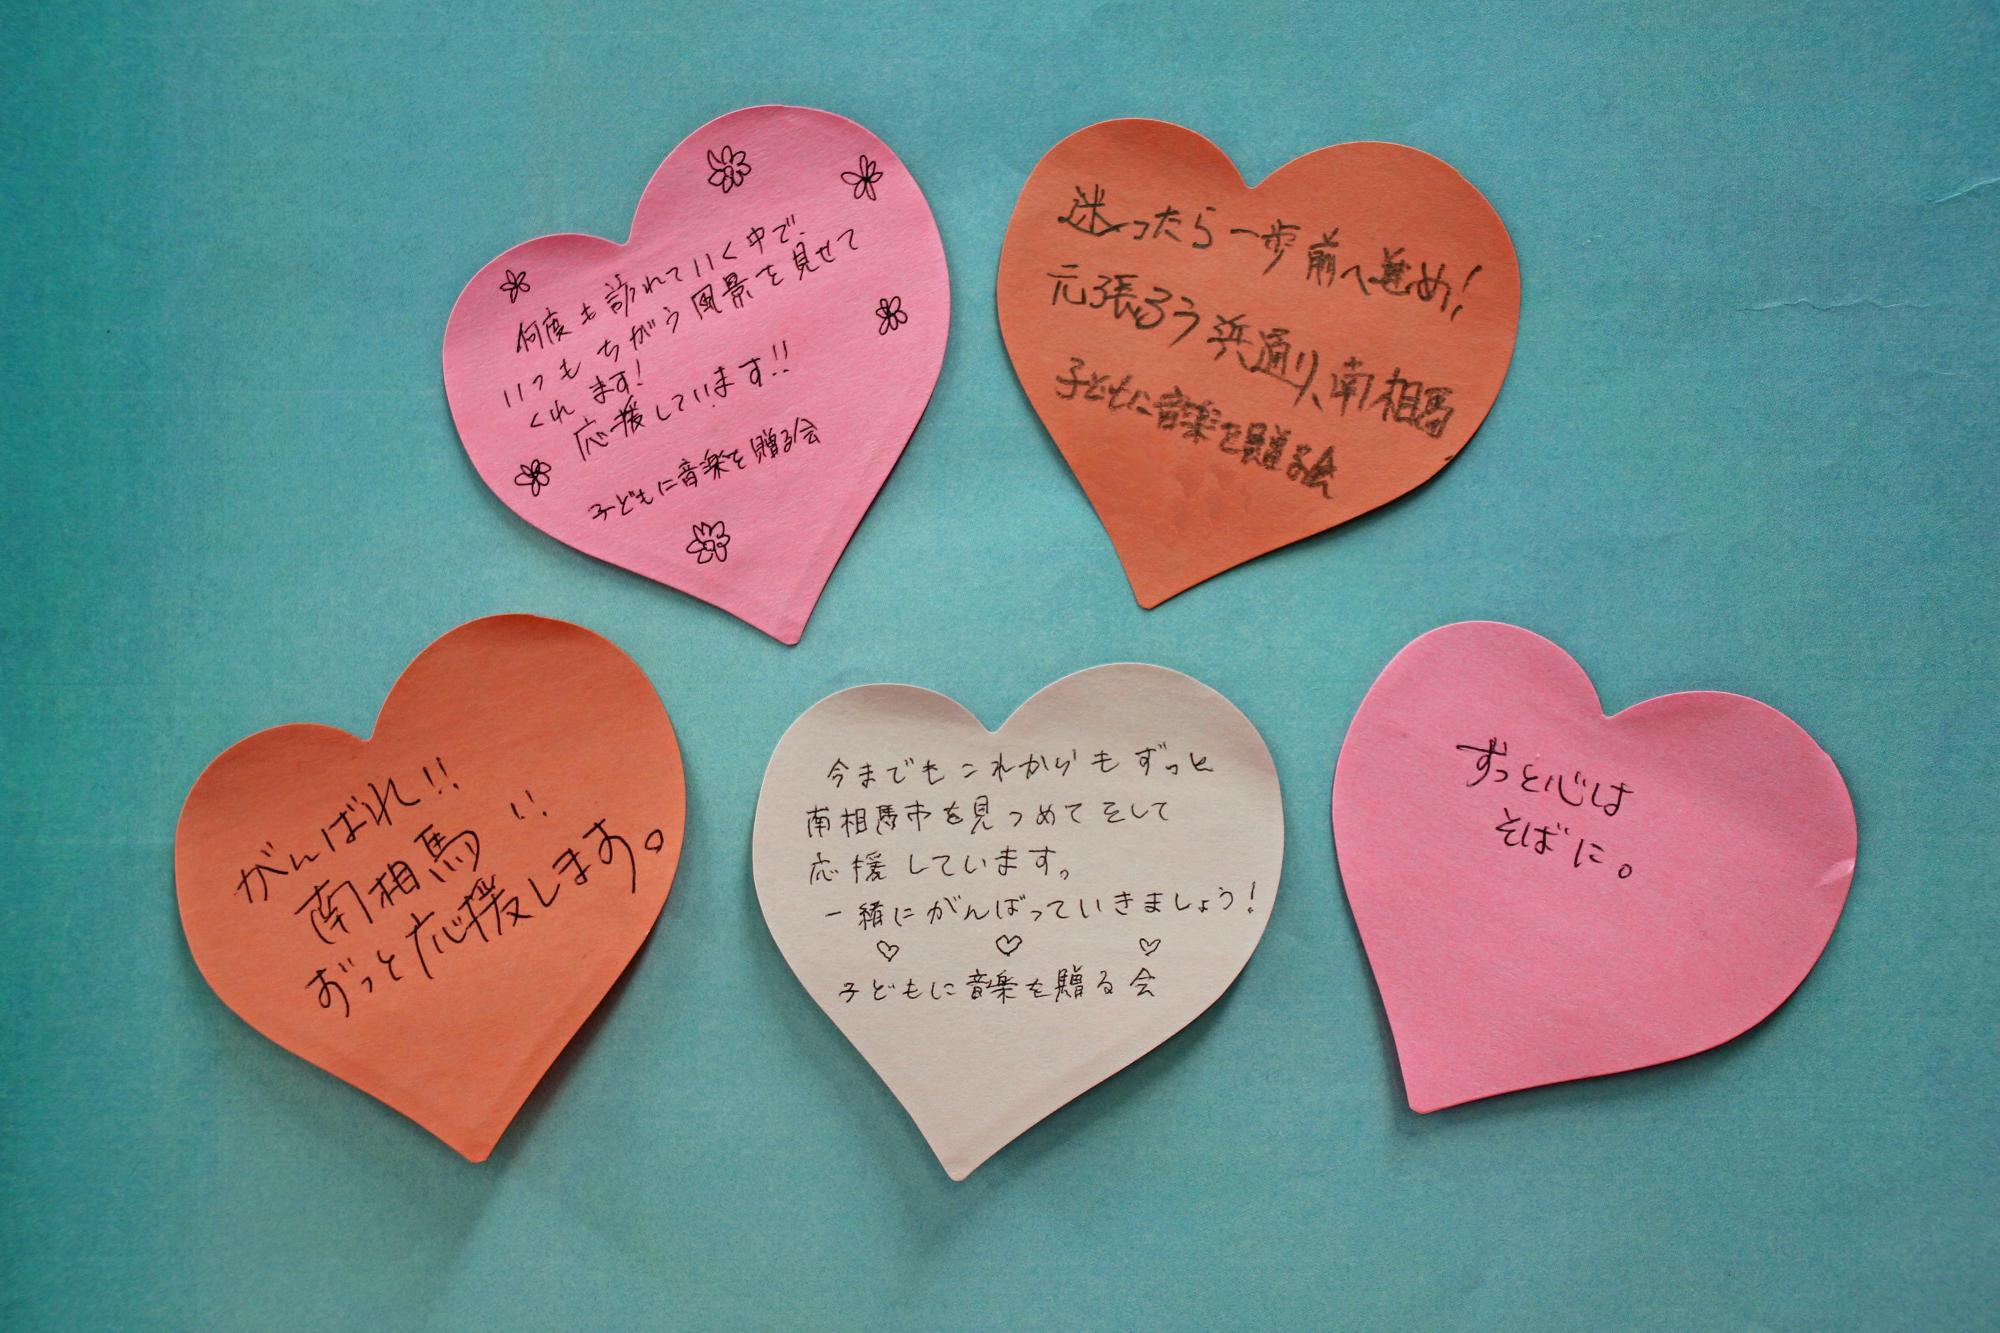 何度も訪れていく中で、
いつもちがう風景を見せて
くれます!
応援しています!!
子どもに音楽を贈る会
迷ったら一歩前へ進め!
元張ろう浜通り、南相馬
子どもに音楽を贈る会
がんばれ!!
南相馬!!
ずっと応援します。
今までもこれからもずっと
南相馬市を見つめてそして
応援しています。
一緒にがんばっていきましょう!
子どもに音楽を贈る会
ずっと心は
そばに。